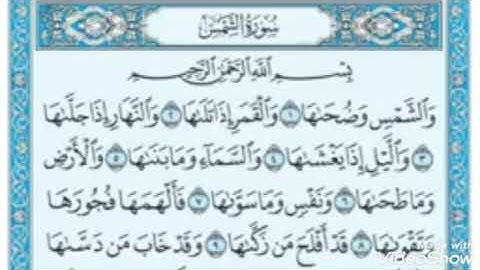 سُورَةُ الشَّمْسِ
بِسْمِ اللَّهِ الرَّحْمَٰنِ الرَّحِيمِ
وَالشَّمْسِ وَضُحَىٰهَا ١ وَالْقَمَرِ إِذَا تَلَىٰهَا ٢ وَالنَّهَارِ إِذَا جَلَّىٰهَا
٣ وَاللَّيْلِ إِذَا يَغْشَىٰهَا ٤ وَالسَّمَاءِ وَمَا بَنَىٰهَا ٥ وَالْأَرْضِ
وَمَا طَحَىٰهَا ٦ وَنَفْسٍ وَمَا سَوَّىٰهَا ٧ فَأَلْهَمَهَا فُجُورَهَا
وَتَقْوَىٰهَا ٨ قَدْ أَفْلَحَ مَن زَكَّىٰهَا ٩ وَقَدْ خَابَ مَن دَسَّىٰهَا
Made with
VideoShow